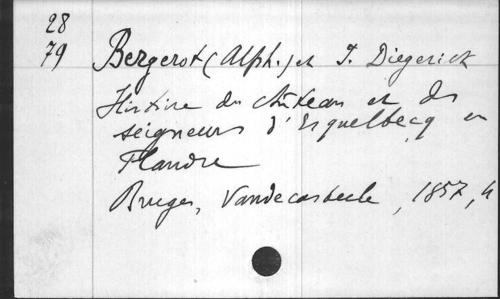 28
79 Bergerot (Alph.) et I. Diegerick
Histoire du château et des
seigneurs d'Esquelbecq en
Flandre
Bruges, Vandecasteele, 1857, 4